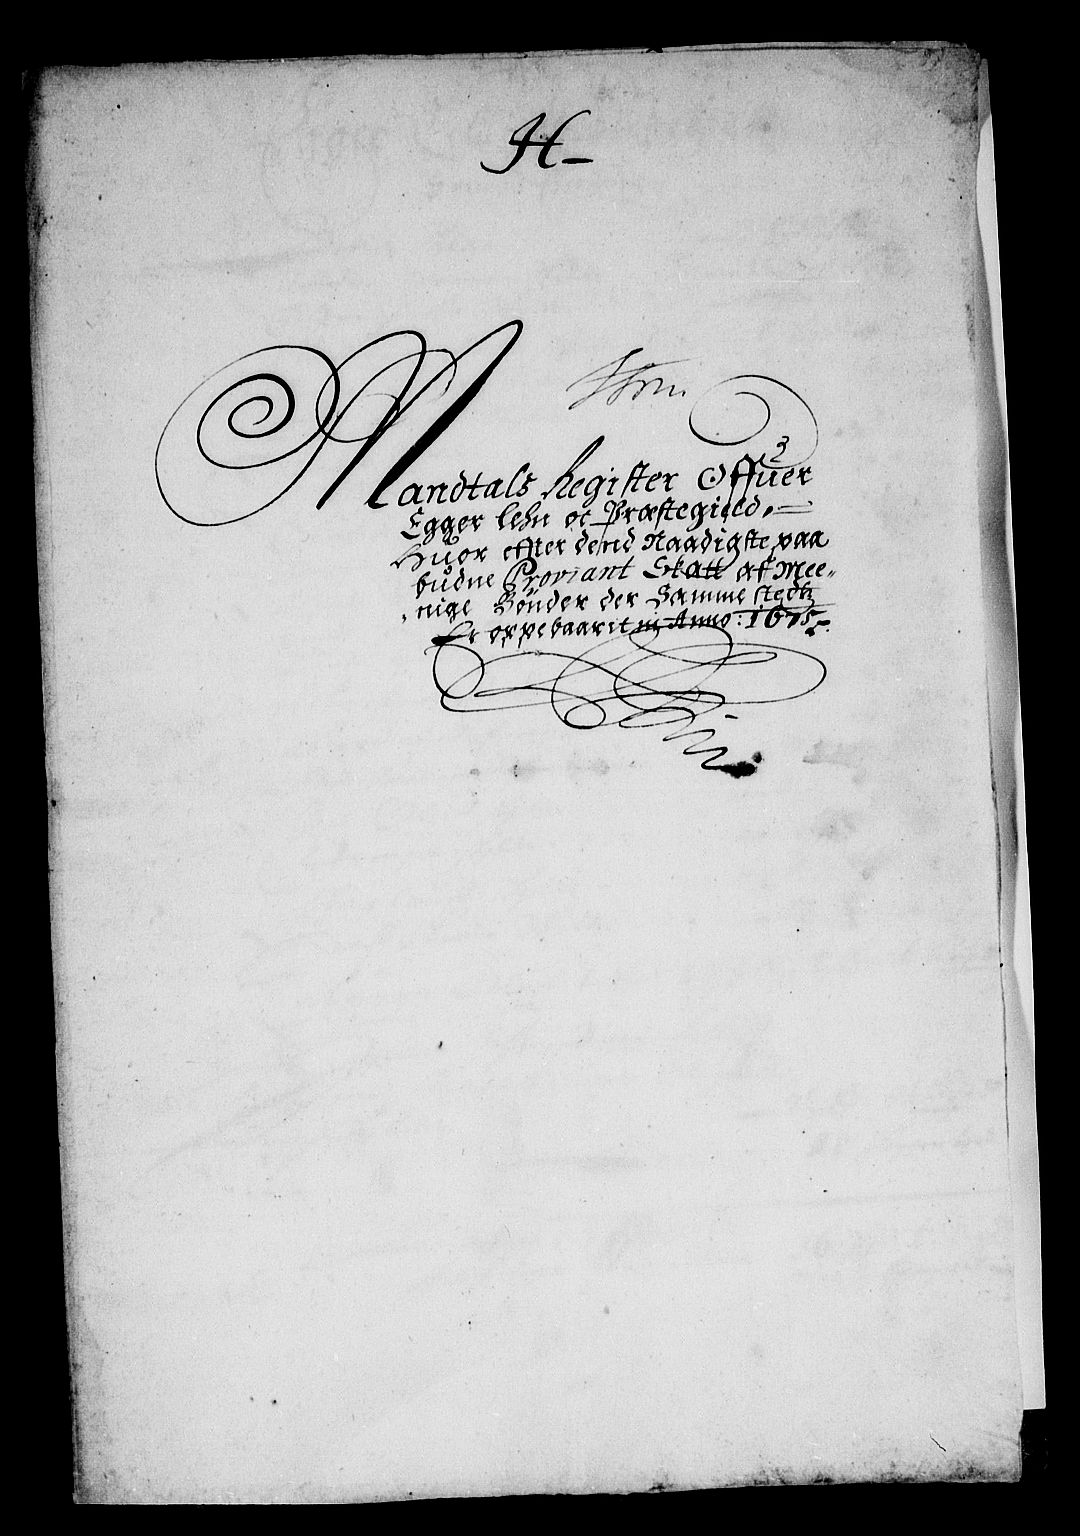 H
Mandtals Register Offuer
Egger lehn oc Præstegield,
Huor effter dend Naadigste paa
budne Proviant Skatt af Mee-
nige Bønder der Samme stedtz
Er oppebaarit in Anno: 1675